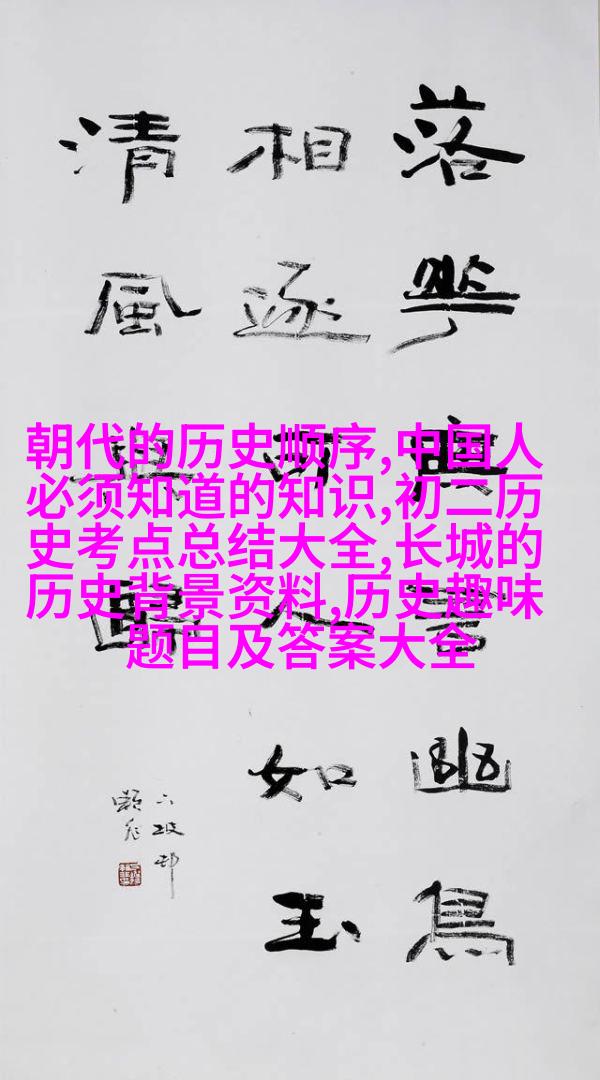 落華無言幽鳥
相逐可人如玉
清風與歸
朝代的历史顺序,中国人
必须知道的知识,初二历
史考点总结大全,长城的
历史背景资料,历史趣味
题目及答案大全